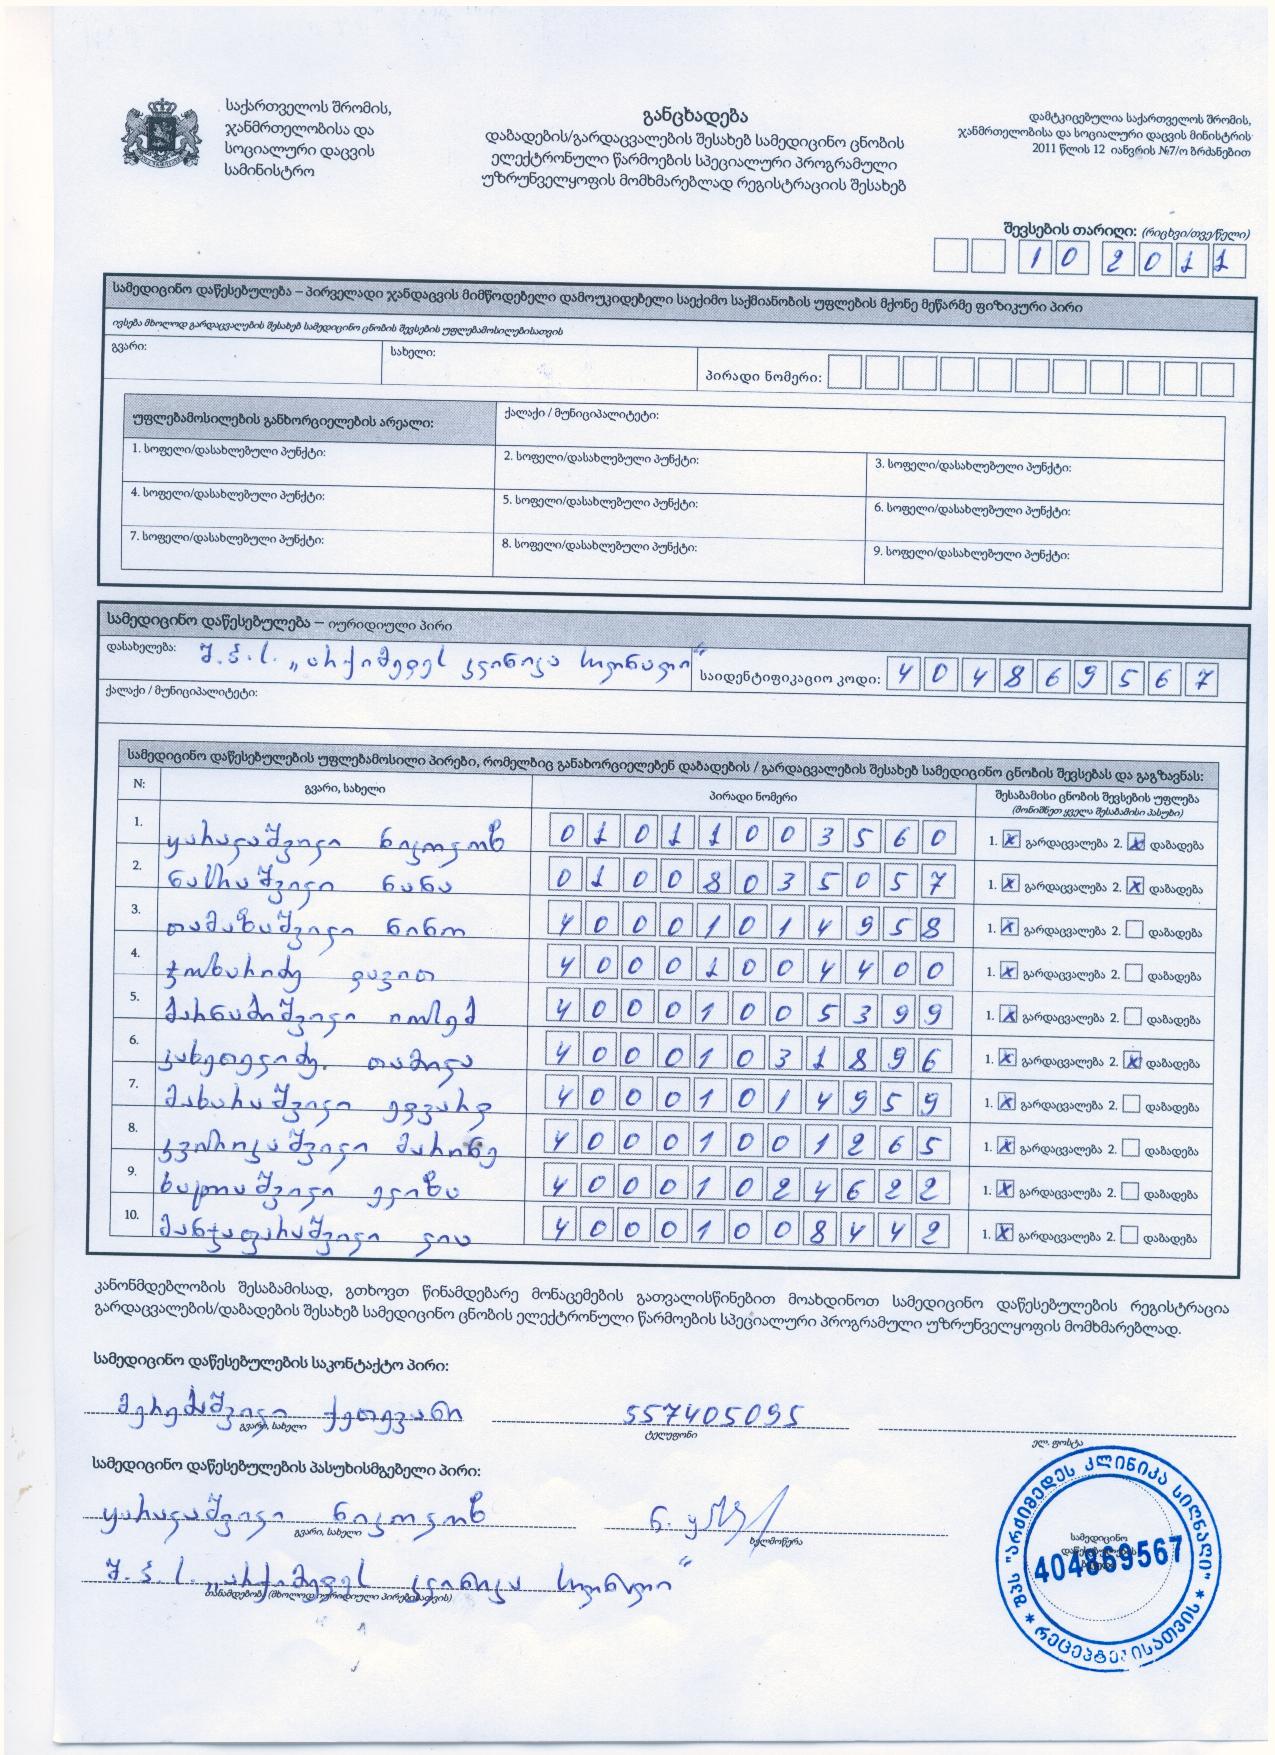 საქართველოს შრომის,
ჯანმრთელობისა და
სოციალური დაცვის
სამინისტრო
განცხადება
დაბადების/გარდაცვალების შესახებ სამედიცინო ცნობის
ელექტრონული წარმოების სპეციალური პროგრამული
უზრუნველყოფის მომხმარებლად რეგისტრაციის შესახებ
დამტკიცებულია საქართველოს შრომის,
ჯანმრთელობისა და სოციალური დაცვის მინისტრის
2011 წლის 12 იანვრის №7/ო ბრძანებით
შევსების თარიღი: (რიცხვი/თვე/წელი)
10 2011
სამედიცინო დაწესებულება – პირველადი ჯანდაცვის მიმწოდებელი დამოუკიდებელი საექიმო საქმიანობის უფლების მქონე მეწარმე ფიზიკური პირი
ივსება მხოლოდ გარდაცვალების შესახებ სამედიცინო ცნობის შევსების უფლებამოსილებისათვის
გვარი: სახელი: პირადი ნომერი:
უფლებამოსილების განხორციელების არეალი: ქალაქი / მუნიციპალიტეტი:
1. სოფელი/დასახლებული პუნქტი: 2. სოფელი/დასახლებული პუნქტი: 3. სოფელი/დასახლებული პუნქტი:
4. სოფელი/დასახლებული პუნქტი: 5. სოფელი/დასახლებული პუნქტი: 6. სოფელი/დასახლებული პუნქტი:
7. სოფელი/დასახლებული პუნქტი: 8. სოფელი/დასახლებული პუნქტი: 9. სოფელი/დასახლებული პუნქტი:
სამედიცინო დაწესებულება – იურიდიული პირი
დასახელება: შ.პ.ს. „არქიმედეს კლინიკა სიღნაღი“ საიდენტიფიკაციო კოდი: 404869567
ქალაქი / მუნიციპალიტეტი:
სამედიცინო დაწესებულების უფლებამოსილი პირები, რომელბიც განახორციელებენ დაბადების / გარდაცვალების შესახებ სამედიცინო ცნობის შევსებას და გაგზავნას:
N: გვარი, სახელი პირადი ნომერი შესაბამისი ცნობის შევსების უფლება
(მონიშნეთ ყველა შესაბამისი პასუხი)
1. ყარალაშვილი ნიკოლოზ 01011003560 1. x გარდაცვალება 2. x დაბადება
2. ნასრაშვილი ნანა 01008035057 1. x გარდაცვალება 2. x დაბადება
3. თამაზაშვილი ნინო 40001014958 1. x გარდაცვალება 2. დაბადება
4. დავით 40001004400 1. x გარდაცვალება 2. დაბადება
5. იოსებ 40001005399 1. x გარდაცვალება 2. დაბადება
6. კახეთელიძე თამილა 40001031896 1. x გარდაცვალება 2. x დაბადება
7. მახარაშვილი ედვარდ 40001014959 1. x გარდაცვალება 2. დაბადება
8. კვირიკაშვილი მარინე 40001001265 1. x გარდაცვალება 2. დაბადება
9. ელიზა 40001024622 1. x გარდაცვალება 2. დაბადება
10. მანჯაფარაშვილი ლია 40001008442 1. x გარდაცვალება 2. დაბადება
კანონმდებლობის შესაბამისად, გთხოვთ წინამდებარე მონაცემების გათვალისწინებით მოახდინოთ სამედიცინო დაწესებულების რეგისტრაცია
გარდაცვალების/დაბადების შესახებ სამედიცინო ცნობის ელექტრონული წარმოების სპეციალური პროგრამული უზრუნველყოფის მომხმარებლად.
სამედიცინო დაწესებულების საკონტაქტო პირი:
მერებაშვილი ქეთევანი 557405095
გვარი, სახელი ტელეფონი ელ. ფოსტა
სამედიცინო დაწესებულების პასუხისმგებელი პირი:
ყარალაშვილი ნიკოლოზ
გვარი, სახელი ხელმოწერა
შ.პ.ს. „არქიმედეს კლინიკა სიღნაღი“
თანამდებობა (მხოლოდ იურიდიული პირებისათვის)
შპს "არქიმედეს კლინიკა სიღნაღი" * რეცეპტებისათვის *
სამედიცინო
დაწესებულების
404869567